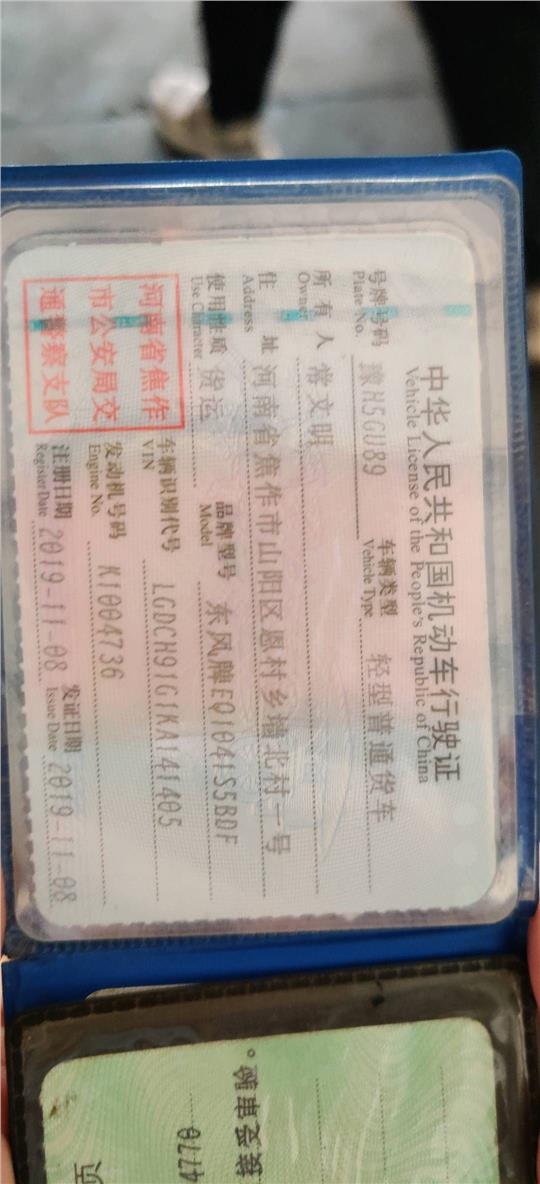 中华人民共和国机动车行驶证
Vehicle License of the People's Republic of China
号牌号码 豫H5GU89 车辆类型 轻型普通货车
Plate No. Vehicle Type
所有人 常文明
Owner
住址 河南省焦作市山阳区恩村乡墙北村一号
Address
使用性质 货运 品牌型号 东风牌EQ1041S5BDF
Use Character Model
河南省焦作
市公安局交
通警察支队
车辆识别代号 LGDCH91G1KA141405
VIN
发动机号码 K1004736
Engine No.
注册日期 2019-11-08 发证日期 2019-11-08
Register Date Issue Date
页
4770